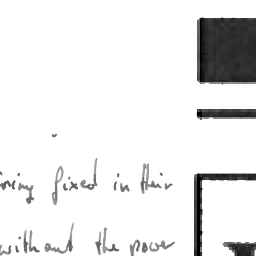 fixed in their
without the power